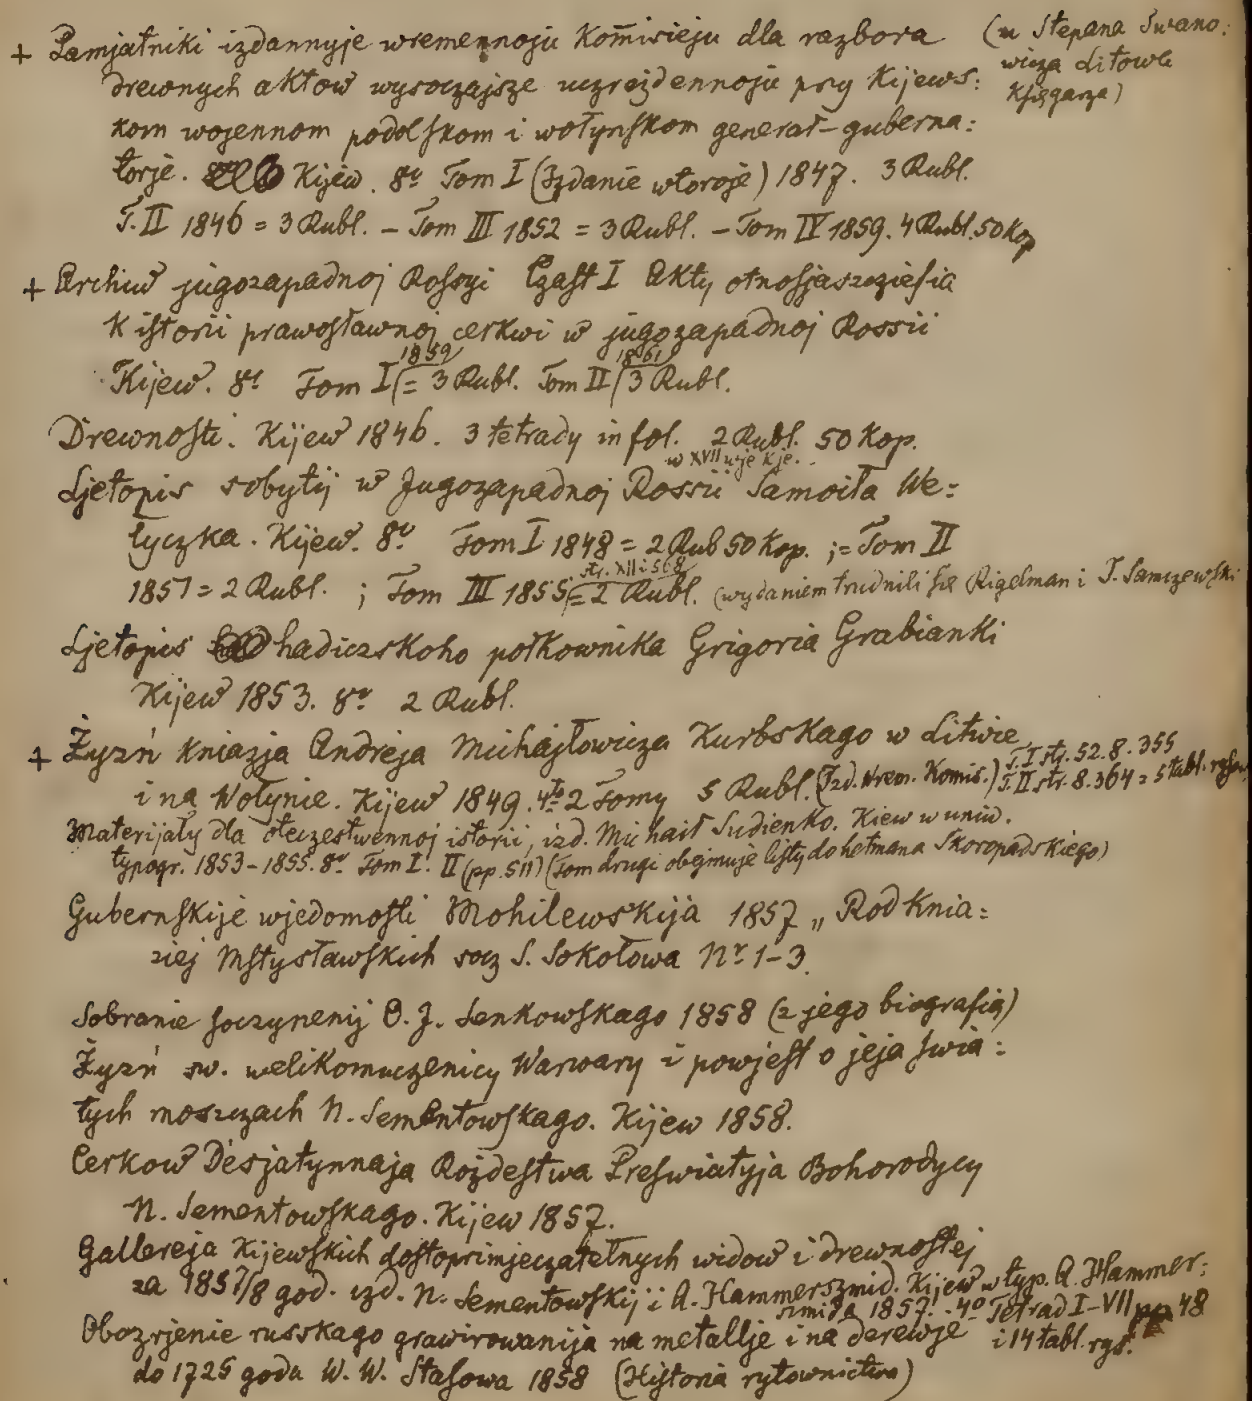 + Pamjatniki izdannyje wremennoju Kom̄isieju dla razbora (u Stepana Iwano:
drewnych aktow wysoczajsze uczreżdennoju pry Kijews: wicza Litowa
kom wojennom podolskom i wołynskom generał-guberna: Księgarza)
torje. Kijew. 8º Tom I (Izdanie wtoroje) 1847. 3 Rubl.
T. II 1846 = 3 Rubl. – Tom III 1852 = 3 Rubl. – Tom IV 1859. 4 Rubl. 50 Kop
+ Archiw jugozapadnoj Rossyi Czast I Akty otnosjaszcziesia
K istorii prawosławnoj cerkwi w jugozapadnoj Rossii
1859 1861
Kijew. 8º Tom I (= 3 Rubl. Tom II (3 Rubl.
Drewnosti. Kijew 1846. 3 tetrady in fol. 2 Rubl. 50 Kop.
w XVII
Ljetopis sobytij w Jugozapadnoj Rossii Samoiła We:
łyczka. Kijew. 8º Tom I 1848 = 2 Rub 50 Kop. ;= Tom II
str. XII i 568
1851 = 2 Rubl. ; Tom III 1855 = 2 Rubl. (wydaniem trudnili się Rigelman i J. Samczewski
Ljetopis hadiczskoho połkownika Grigoria Grabianki
Kijew 1853. 8º 2 Rubl.
+ Żyzń Kniazja Andreja Michajłowicza Kurbskago w Litwie
T. I str. 52. 8. 355
i na Wołynie. Kijew 1849. 4to 2 Tomy 5 Rubl. (Izd. Wrem. Komis.) T. II str. 8. 364 = 5 tabl.
Materijały dla oteczestwennoj istorii, izd. Michaił Sudienko. Kiew w uniw.
typogr. 1853–1855. 8º Tom I. II (pp. 511) (Tom drugi obejmuje listy do hetmana Skoropadskiego)
Gubernskije wjedomosti Mohilewskija 1857 „ Rod Knia:
ziej Mstysławskich socz S. Sokołowa Nr. 1–3.
Sobranie soczynenij O. J. Senkowskago 1858 (z jego biografią)
Żyzń sw. welikomuczenicy Warwary i powjest o jeja swia:
tych moszczach N. Sementowskago. Kijew 1858.
Cerkow Desjatynnaja Rożdestwa Preswiatyja Bohorodycy
N. Sementowskago. Kijew 1857.
Gallereja Kijewskich dostoprimjeczatelnych widow i drewnostej
za 1857/8 god. izd. N. Sementowskij i A. Hammerszmid. Kijew w typ. A. Hammer:
szmida 1857. 4º Tetrad I–VII pp 48
Obozrjenie russkago grawirowanija na metallje i na derewje i 14 tabl. rys.
do 1725 goda W. W. Stasowa 1858 (Historia rytownictwa)